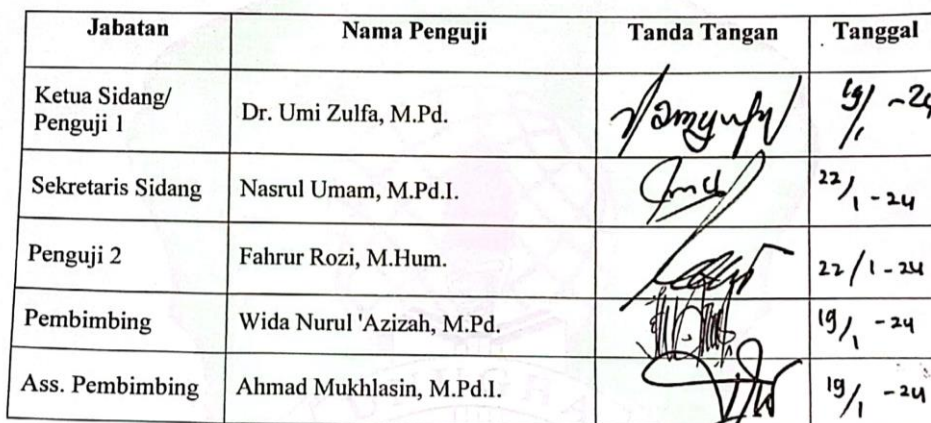 Jabatan Nama Penguji Tanda Tangan Tanggal
Ketua Sidang/
Penguji 1 Dr. Umi Zulfa, M.Pd. 19/1 -24
Sekretaris Sidang Nasrul Umam, M.Pd.I. 22/1 - 24
Penguji 2 Fahrur Rozi, M.Hum. 22/1 - 24
Pembimbing Wida Nurul 'Azizah, M.Pd. 19/1 -24
Ass. Pembimbing Ahmad Mukhlasin, M.Pd.I. 19/1 -24